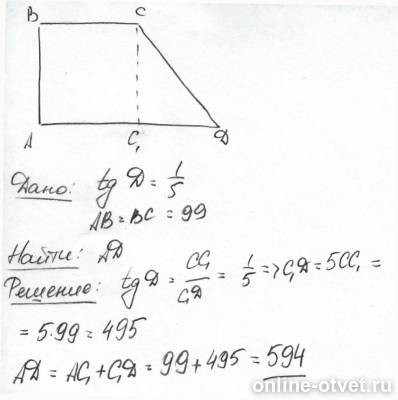 B C
A C₁ D
Дано: tg D = 1/5
AB = BC = 99
Найти: AD
Решение: tg D = CC₁/C₁D = 1/5 => C₁D = 5CC₁ =
= 5·99 = 495
AD = AC₁ + C₁D = 99 + 495 = 594
online-otvet.ru